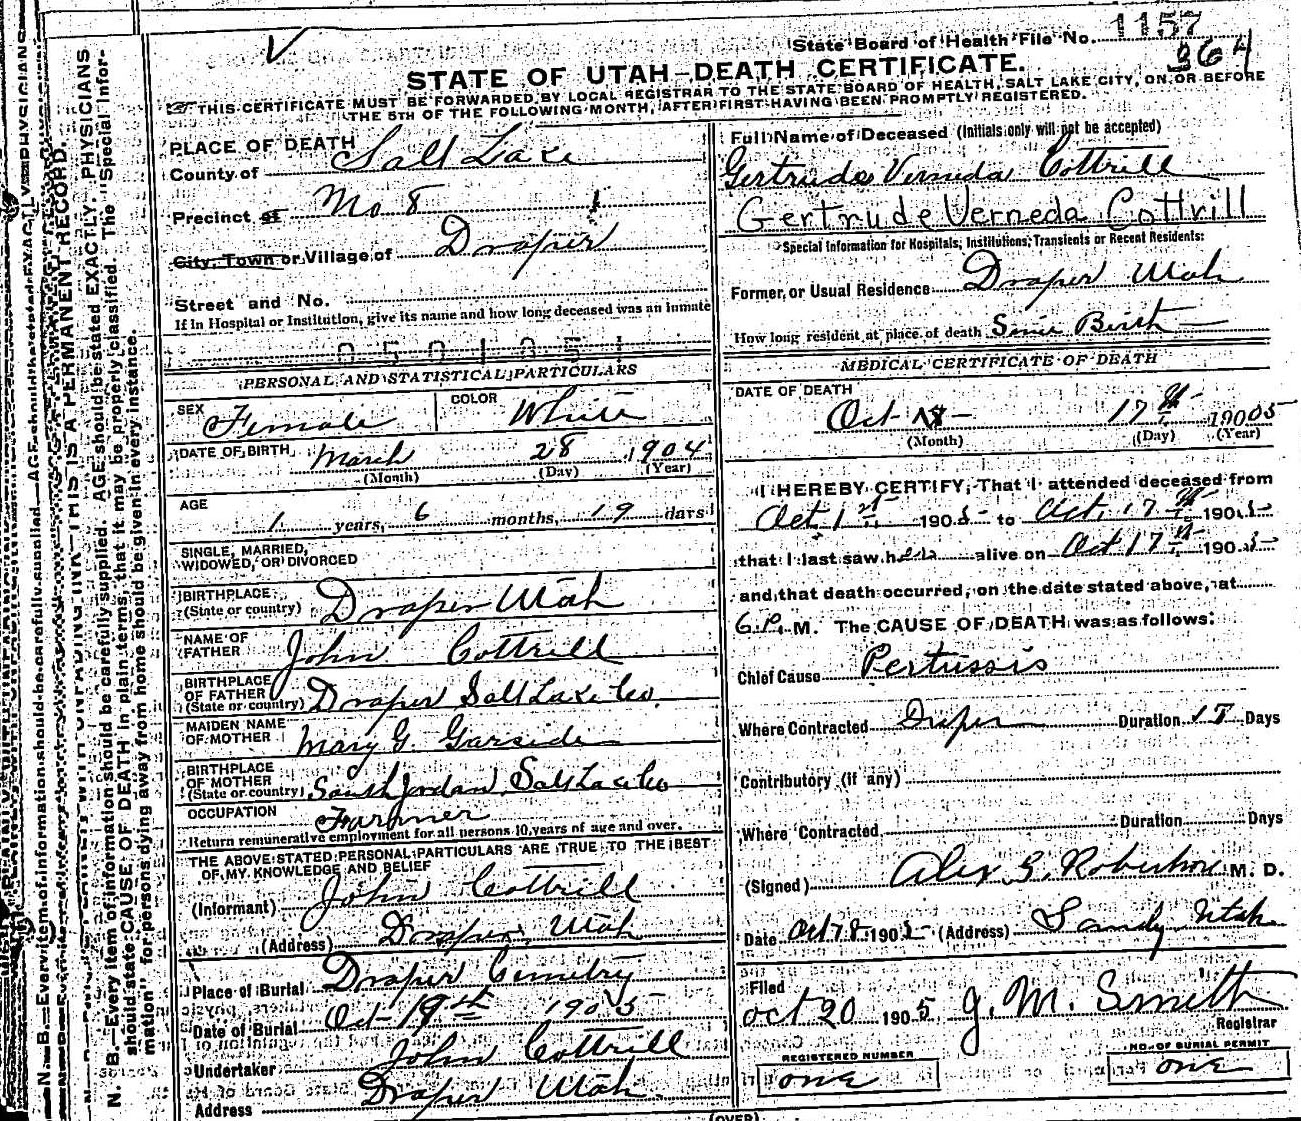 State Board of Health File No. 1157
364
STATE OF UTAH—DEATH CERTIFICATE.
THIS CERTIFICATE MUST BE FORWARDED BY LOCAL REGISTRAR TO THE STATE BOARD OF HEALTH, SALT LAKE CITY, ON OR BEFORE
THE 5TH OF THE FOLLOWING MONTH, AFTER FIRST HAVING BEEN PROMPTLY REGISTERED.
PLACE OF DEATH
County of Salt Lake
Precinct of No 8
City, Town or Village of Draper
Street and No.
If in Hospital or Institution, give its name and how long deceased was an inmate
PERSONAL AND STATISTICAL PARTICULARS
SEX Female COLOR White
DATE OF BIRTH March 28 1904
(Month) (Day) (Year)
AGE
1 years, 6 months, 19 days
SINGLE, MARRIED,
WIDOWED, OR DIVORCED
BIRTHPLACE
(State or country) Draper Utah
NAME OF
FATHER John Cottrill
BIRTHPLACE
OF FATHER
(State or country) Draper Salt Lake Co.
MAIDEN NAME
OF MOTHER Mary G. Garside
BIRTHPLACE
OF MOTHER
(State or country) South Jordan, Salt Lake Co
OCCUPATION
Farmer
Return remunerative employment for all persons 10 years of age and over.
THE ABOVE STATED PERSONAL PARTICULARS ARE TRUE TO THE BEST
OF MY KNOWLEDGE AND BELIEF
(Informant) John Cottrill
(Address) Draper, Utah
Place of Burial Draper Cemetry
Date of Burial Oct 19th 1905
Undertaker John Cottrill
Address Draper Utah
Full Name of Deceased (Initials only will not be accepted)
Gertrude Verneda Cottrill
Gertrude Verneda Cottrill
Special Information for Hospitals, Institutions, Transients or Recent Residents:
Former, or Usual Residence Draper Utah
How long resident at place of death Since Birth
MEDICAL CERTIFICATE OF DEATH
DATE OF DEATH
Oct 17th 19005
(Month) (Day) (Year)
I HEREBY CERTIFY, That I attended deceased from
Oct 1st 1905 to Oct. 17th 1905
that I last saw her alive on Oct 17th 1905
and that death occurred, on the date stated above, at
6 P. M. The CAUSE OF DEATH was as follows:
Chief Cause Pertussis
Where Contracted Draper Duration 17 Days
Contributory (if any)
Where Contracted Duration Days
(Signed) Alex G. Robertson M. D.
Date Oct 18 1905 (Address) Sandy Utah
Filed
Oct 20 1905 J. M. Smith
Registrar
REGISTERED NUMBER
one
NO. OF BURIAL PERMIT
one
(OVER)
N. B.—Every item of information should be carefully supplied. AGE should be stated EXACTLY. PHYSICIANS
should state CAUSE OF DEATH in plain terms, that it may be properly classified. The "Special Infor-
mation" for persons dying away from home should be given in every instance.